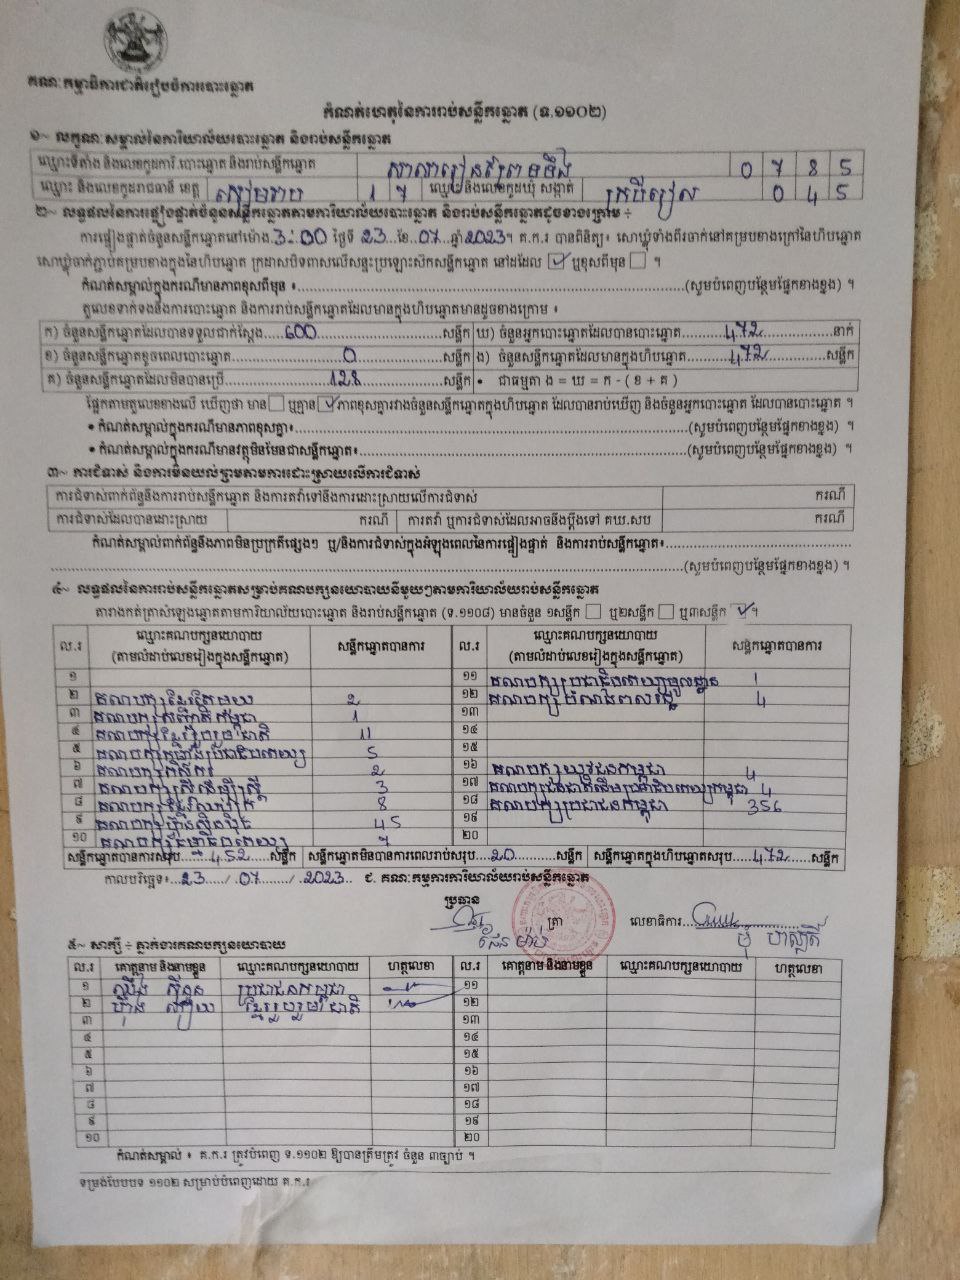 គណៈកម្មាធិការជាតិរៀបចំការបោះឆ្នោត
កំណត់ហេតុនៃការរាប់សន្លឹកឆ្នោត (ទ.១១០២)
១~ លក្ខណៈសម្គាល់នៃការិយាល័យបោះឆ្នោត និងរាប់សន្លឹកឆ្នោត
ឈ្មោះទីតាំង និងលេខកូដការិ.បោះឆ្នោត និងរាប់សន្លឹកឆ្នោត សាលារៀន 0 7 8 5
ឈ្មោះ និងលេខកូដរាជធានី ខេត្ត សៀមរាប 1 7 ឈ្មោះ និងលេខកូដឃុំ សង្កាត់ ក្របីរៀល 0 4 5
២~ លទ្ធផលនៃការផ្ទៀងផ្ទាត់ចំនួនសន្លឹកឆ្នោតតាមការិយាល័យបោះឆ្នោត និងរាប់សន្លឹកឆ្នោតដូចខាងក្រោម ÷
ការផ្ទៀងផ្ទាត់ចំនួនសន្លឹកឆ្នោតនៅម៉ោង 3:00 ថ្ងៃទី 23 ខែ 07 ឆ្នាំ 2023។ គ.ក.រ បានពិនិត្យ៖ សោឃ្លុំទាំងពីរចាក់នៅគម្របខាងក្រៅនៃហិបឆ្នោត
សោឃ្លុំចាក់ភ្ជាប់គម្របខាងក្នុងនៃហិបឆ្នោត ក្រដាសបិទពាសលើសន្ទះប្រឡោះស៊កសន្លឹកឆ្នោត នៅដដែល ☑ ឬខុសពីមុន ☐ ។
កំណត់សម្គាល់ក្នុងករណីមានភាពខុសពីមុន ៖........(សូមបំពេញបន្ថែមផ្នែកខាងខ្នង) ។
តួលេខទាក់ទងនឹងការបោះឆ្នោត និងការរាប់សន្លឹកឆ្នោតដែលមានក្នុងហិបឆ្នោតមានដូចខាងក្រោម ៖
ក) ចំនួនសន្លឹកឆ្នោតដែលបានទទួលជាក់ស្តែង 600 សន្លឹក ឃ) ចំនួនអ្នកបោះឆ្នោតដែលបានបោះឆ្នោត 472 នាក់
ខ) ចំនួនសន្លឹកឆ្នោតខូចពេលបោះឆ្នោត 0 សន្លឹក ង) ចំនួនសន្លឹកឆ្នោតដែលមានក្នុងហិបឆ្នោត 472 សន្លឹក
គ) ចំនួនសន្លឹកឆ្នោតដែលមិនបានប្រើ 128 សន្លឹក • ជាធម្មតា ង = ឃ = ក - ( ខ + គ )
ផ្អែកតាមតួលេខខាងលើ ឃើញថា មាន ☐ ឬគ្មាន ☑ ភាពខុសគ្នារវាងចំនួនសន្លឹកឆ្នោតក្នុងហិបឆ្នោត ដែលបានរាប់ឃើញ និងចំនួនអ្នកបោះឆ្នោត ដែលបានបោះឆ្នោត ។
• កំណត់សម្គាល់ក្នុងករណីមានភាពខុសគ្នា៖........(សូមបំពេញបន្ថែមផ្នែកខាងខ្នង) ។
• កំណត់សម្គាល់ក្នុងករណីមានវត្ថុមិនមែនជាសន្លឹកឆ្នោត៖........(សូមបំពេញបន្ថែមផ្នែកខាងខ្នង) ។
៣~ ការជំទាស់ និងការមិនយល់ព្រមតាមការដោះស្រាយលើការជំទាស់
ការជំទាស់ពាក់ព័ន្ធនឹងការរាប់សន្លឹកឆ្នោត និងការតវ៉ាទៅនឹងការដោះស្រាយលើការជំទាស់ ករណី
ការជំទាស់ដែលបានដោះស្រាយ ករណី ការតវ៉ា ឬការជំទាស់ដែលអាចនឹងប្តឹងទៅ គឃ.សប ករណី
កំណត់សម្គាល់ពាក់ព័ន្ធនឹងភាពមិនប្រក្រតីផ្សេងៗ ឬ/និងការជំទាស់ក្នុងអំឡុងពេលនៃការផ្ទៀងផ្ទាត់ និងការរាប់សន្លឹកឆ្នោត៖........
........(សូមបំពេញបន្ថែមផ្នែកខាងខ្នង) ។
៤~ លទ្ធផលនៃការរាប់សន្លឹកឆ្នោតសម្រាប់គណបក្សនយោបាយនីមួយៗតាមការិយាល័យរាប់សន្លឹកឆ្នោត
តារាងកត់ត្រាសំឡេងឆ្នោតតាមការិយាល័យបោះឆ្នោត និងរាប់សន្លឹកឆ្នោត (ទ.១១០៨) មានចំនួន ១សន្លឹក ☐ ឬ២សន្លឹក ☐ ឬ៣សន្លឹក ☑។
ល.រ ឈ្មោះគណបក្សនយោបាយ (តាមលំដាប់លេខរៀងក្នុងសន្លឹកឆ្នោត) សន្លឹកឆ្នោតបានការ ល.រ ឈ្មោះគណបក្សនយោបាយ (តាមលំដាប់លេខរៀងក្នុងសន្លឹកឆ្នោត) សន្លឹកឆ្នោតបានការ
១ ១១ គណបក្សប្រជាធិបតេយ្យមូលដ្ឋាន 1
២ គណបក្សខ្មែរតែមួយ 2 ១២ គណបក្ស 4
៣ គណបក្ស កម្ពុជា 1 ១៣
៤ គណបក្សខ្មែររួបរួមជាតិ 11 ១៤
៥ គណបក្សកម្លាំងប្រជាធិបតេយ្យ 5 ១៥
៦ គណបក្សកសិករ 2 ១៦ គណបក្សយុវជនកម្ពុជា 4
៧ គណបក្សស្ត្រីដើម្បីស្ត្រី 3 ១៧ គណបក្សជនជាតិដើមប្រជាធិបតេយ្យកម្ពុជា 4
៨ គណបក្សខ្មែរ 8 ១៨ គណបក្សប្រជាជនកម្ពុជា 356
៩ គណបក្សហ្វ៊ុនស៊ិនប៉ិច 45 ១៩
១០ គណបក្សធម្មាធិបតេយ្យ 7 ២០
សន្លឹកឆ្នោតបានការសរុប 452 សន្លឹក សន្លឹកឆ្នោតមិនបានការពេលរាប់សរុប 20 សន្លឹក សន្លឹកឆ្នោតក្នុងហិបឆ្នោតសរុប 472 សន្លឹក
កាលបរិច្ឆេទ៖ 23 / 07 / 2023 ជ. គណៈកម្មការការិយាល័យរាប់សន្លឹកឆ្នោត
ប្រធាន
ត្រា លេខាធិការ
៥~ សាក្សី ÷ ភ្នាក់ងារគណបក្សនយោបាយ
ល.រ គោត្តនាម និងនាមខ្លួន ឈ្មោះគណបក្សនយោបាយ ហត្ថលេខា ល.រ គោត្តនាម និងនាមខ្លួន ឈ្មោះគណបក្សនយោបាយ ហត្ថលេខា
១ ប្រជាជនកម្ពុជា ១១
២ ខ្មែររួបរួមជាតិ ១២
៣ ១៣
៤ ១៤
៥ ១៥
៦ ១៦
៧ ១៧
៨ ១៨
៩ ១៩
១០ ២០
កំណត់សម្គាល់ ៖ គ.ក.រ ត្រូវបំពេញ ទ.១១០២ ឱ្យបានត្រឹមត្រូវ ចំនួន ៣ច្បាប់ ។
ទម្រង់បែបបទ ១១០២ សម្រាប់បំពេញដោយ គ.ក.រ